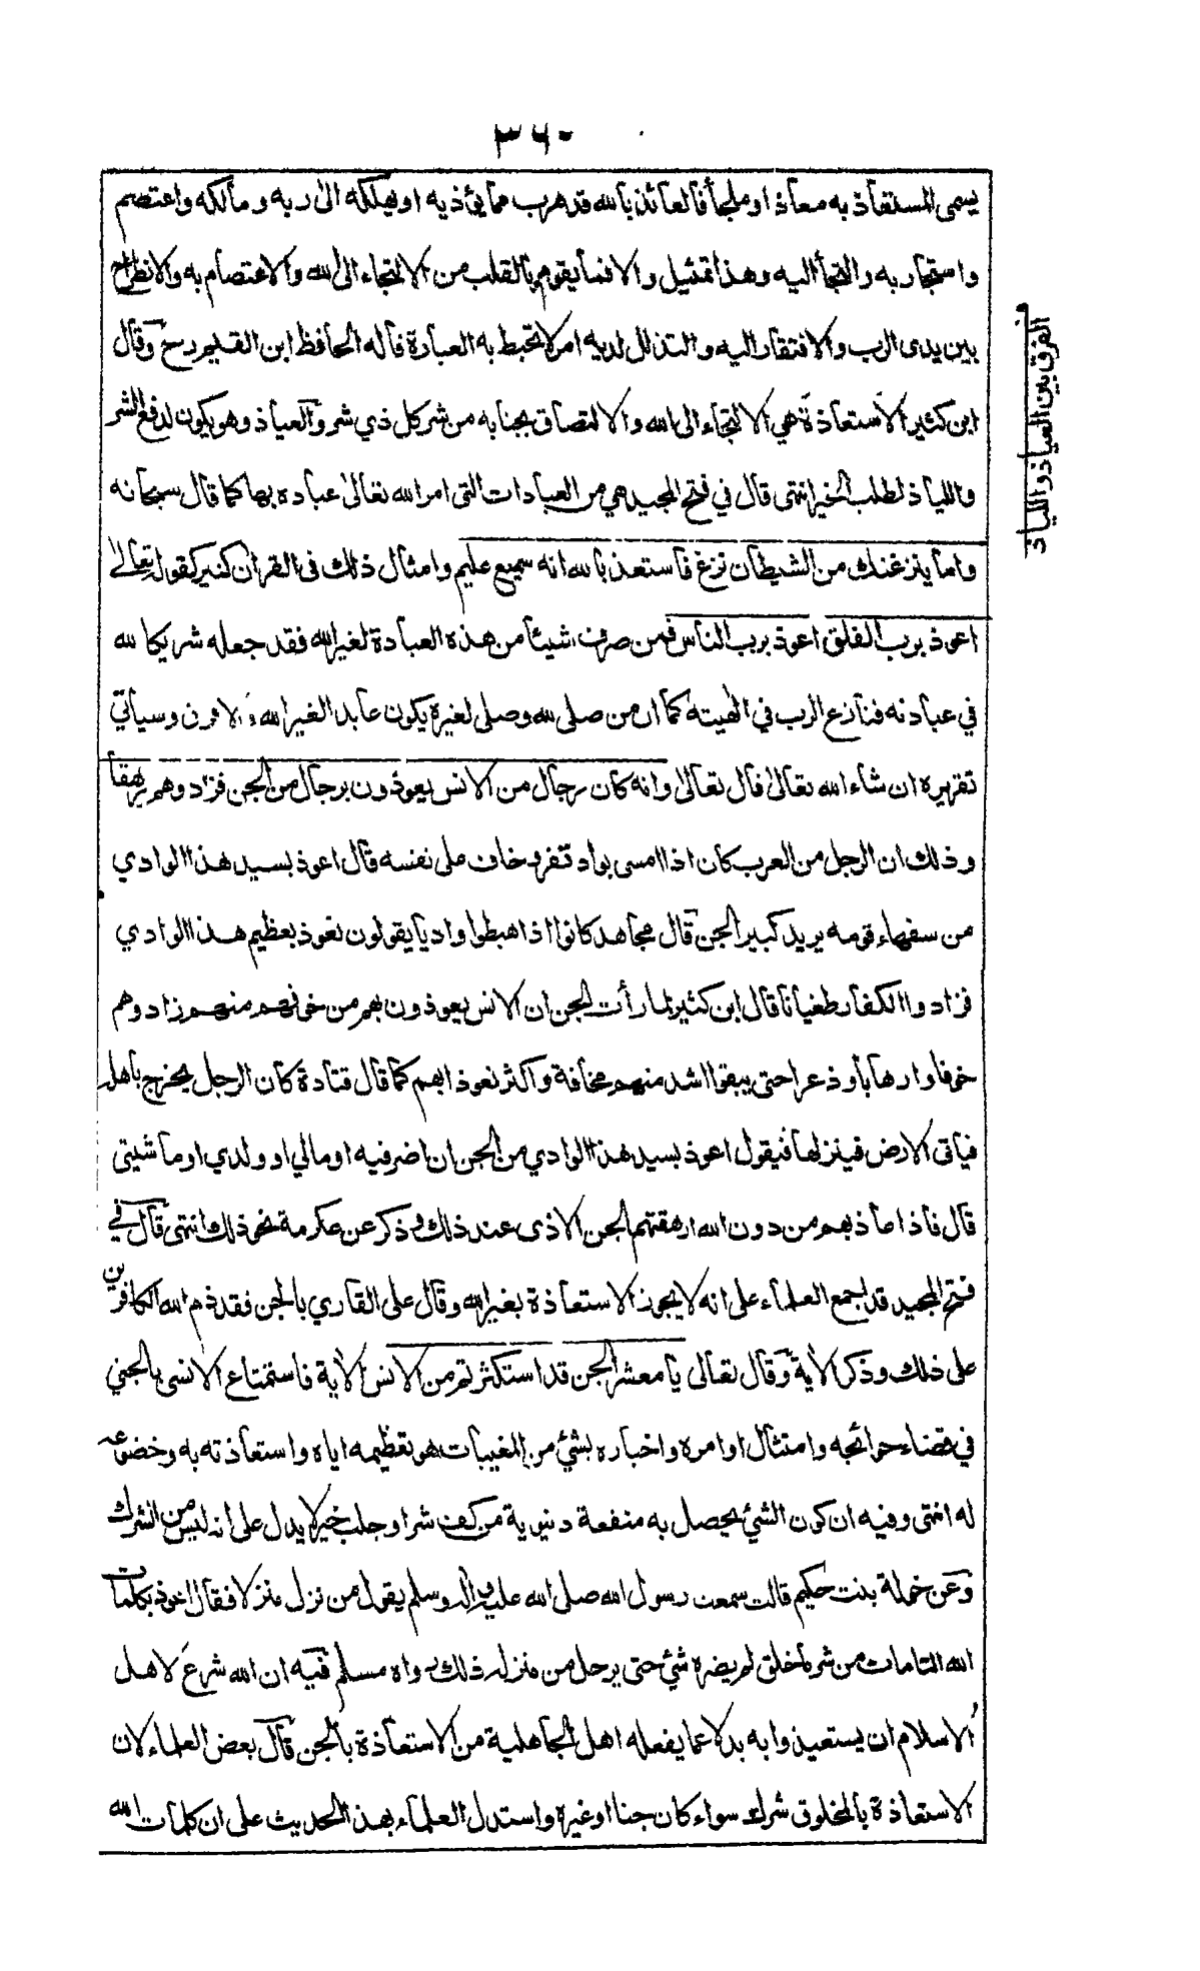 ٣٦٠
يسمى المستعاذ به معاذا وملجأ فالعائذ بالله قد هرب مما يؤذيه او يهلكه الى ربه ومالكه واعتصم
واستجار به والتجأ اليه وهذا تمثيل والا فما يقوم بالقلب من الالتجاء الى الله والاعتصام به والانطراح
بين يدى الرب والافتقار اليه والتذلل لديه امر لا تحيط به العبارة قاله الحافظ ابن القيم رح وقال
ابن كثير الاستعاذة هي الالتجاء الى الله والالتصاق بجنابه من شر كل ذي شر والعياذ وهو يكون لدفع الشر
واللياذ لطلب الخير انتهى قال في فتح المجيد هي من العبادات التى امر الله تعالى عباده بها كما قال سبحانه
واما ينزغنك من الشيطان نزغ فاستعذ بالله انه سميع عليم وامثال ذلك فى القرآن كثير كقوله تعالى
اعوذ برب الفلق اعوذ برب الناس فمن صرف شيئا من هذه العبادة لغير الله فقد جعله شريكا لله
في عبادته فنازع الرب في الهيته كما ان من صلى لله وصلى لغيره يكون عابدا لغير الله ولا فرق وسيأتي
تقريره ان شاء الله تعالى قال تعالى وانه كان رجال من الانس يعوذون برجال من الجن فزادوهم رهقا
وذلك ان الرجل من العرب كان اذا امسى بواد تفرد خاف على نفسه قال اعوذ بسيد هذا الوادي
من سفهاء قومه يريد كبير الجن قال مجاهد كانوا اذا هبطوا واديا يقولون نعوذ بعظيم هذا الوادي
فزادوا الكفار طغيانا قال ابن كثير لما رأت الجن ان الانس يعوذون بهم من خوفهم منهم زادوهم
خوفا وارهابا وذعرا حتى يبقوا اشد منهم مخافة واكثر تعوذا بهم كما قال قتادة كان الرجل يخرج باهله
فيأتى الارض فينزلها فيقول اعوذ بسيد هذا الوادي من الجن ان اضر فيه او مالي او ولدي او ماشيتي
قال فاذا عاذ بهم من دون الله ارهقتهم الجن الاذى عند ذلك وذكر عن عكرمة نحو ذلك انتهى قال في
فتح المجيد قد اجمع العلماء على انه لا يجوز الاستعاذة بغير الله وقال على القاري بالجن فقد ذم الله الكافرين
على ذلك وذكر الآية وقال تعالى يا معشر الجن قد استكثرتم من الانس الآية فاستمتاع الانسى بالجني
في قضاء حوائجه وامتثال اوامره واخباره بشئ من المغيبات هو تعظيمه اياه واستعاذته به وخضوعه
له انتهى وفيه ان كون الشئ يحصل به منفعة دنيوية من كف شر او جلب خير لا يدل على انه ليس من الشرك
وعن خولة بنت حكيم قالت سمعت رسول الله صلى الله عليه واله وسلم يقول من نزل منزلا فقال اعوذ بكلمات
الله التامات من شر ما خلق لم يضره شئ حتى يرحل من منزله ذلك رواه مسلم فيه ان الله شرع لاهل
الاسلام ان يستعيذوا به بدلا عما يفعله اهل الجاهلية من الاستعاذة بالجن قال بعض العلماء لان
الاستعاذة بالمخلوق شرك سواء كان جنا او غيره واستدل العلماء بهذا الحديث على ان كلمات الله
الفرق بين العياذ واللياذ